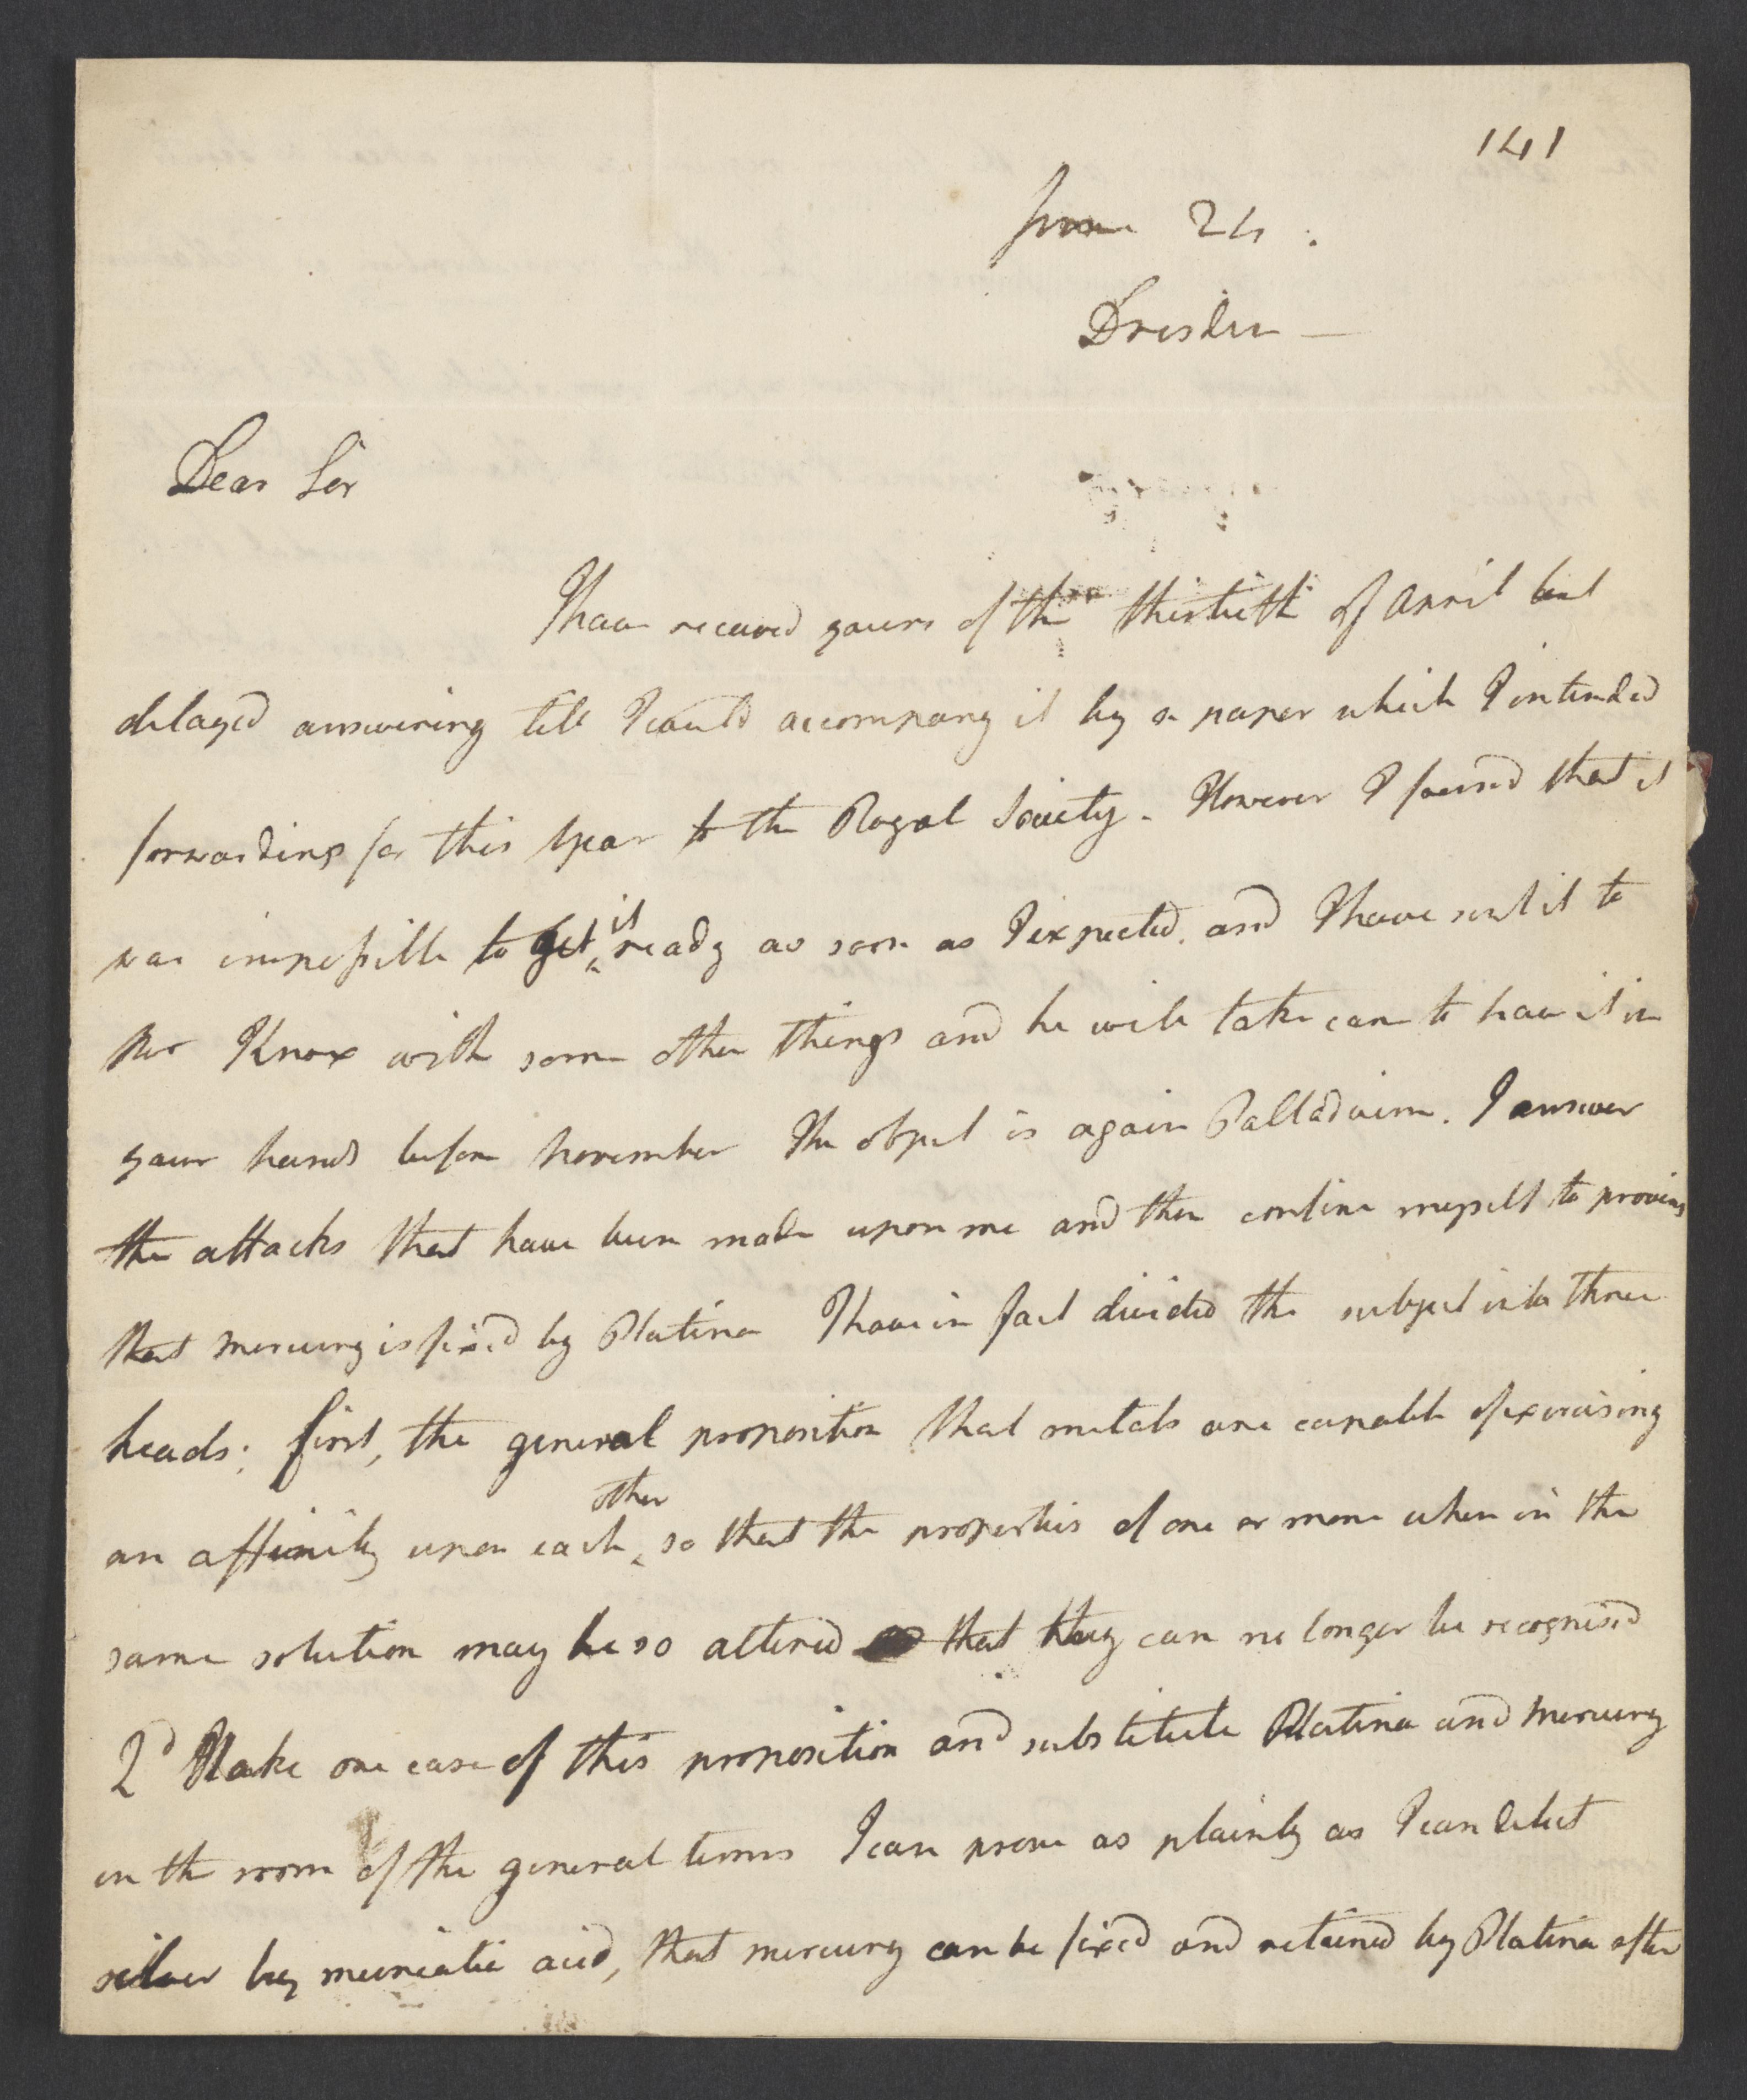 141
June 24.
Dresden —
Dear Sir
I have received yours of the thirtieth of April but
delayed answering till I could accompany it by a paper which I intended
forwarding for this year to the Royal Society. However I found that it
was impossible to get it ready as soon as I expected. and I have sent it to
Mr Knox with some other things and he will take care to have it in
your hands before November The object is again Palladium. I answer
the attacks that have been made upon me and then confine myself to proving
that mercury is fixed by Platina I have in fact divided the subject into three
heads; first, the general proposition that metals are capable of exercising
an affinity upon each other so that the properties of one or more when in the
same solution may be so altered that they can no longer be recognised
2d Take one case of this proposition and substitute Platina and mercury
in the room of the general terms I can prove as plainly as I can detect
silver by muriatic acid, that mercury can be fixed and retained by Platina after